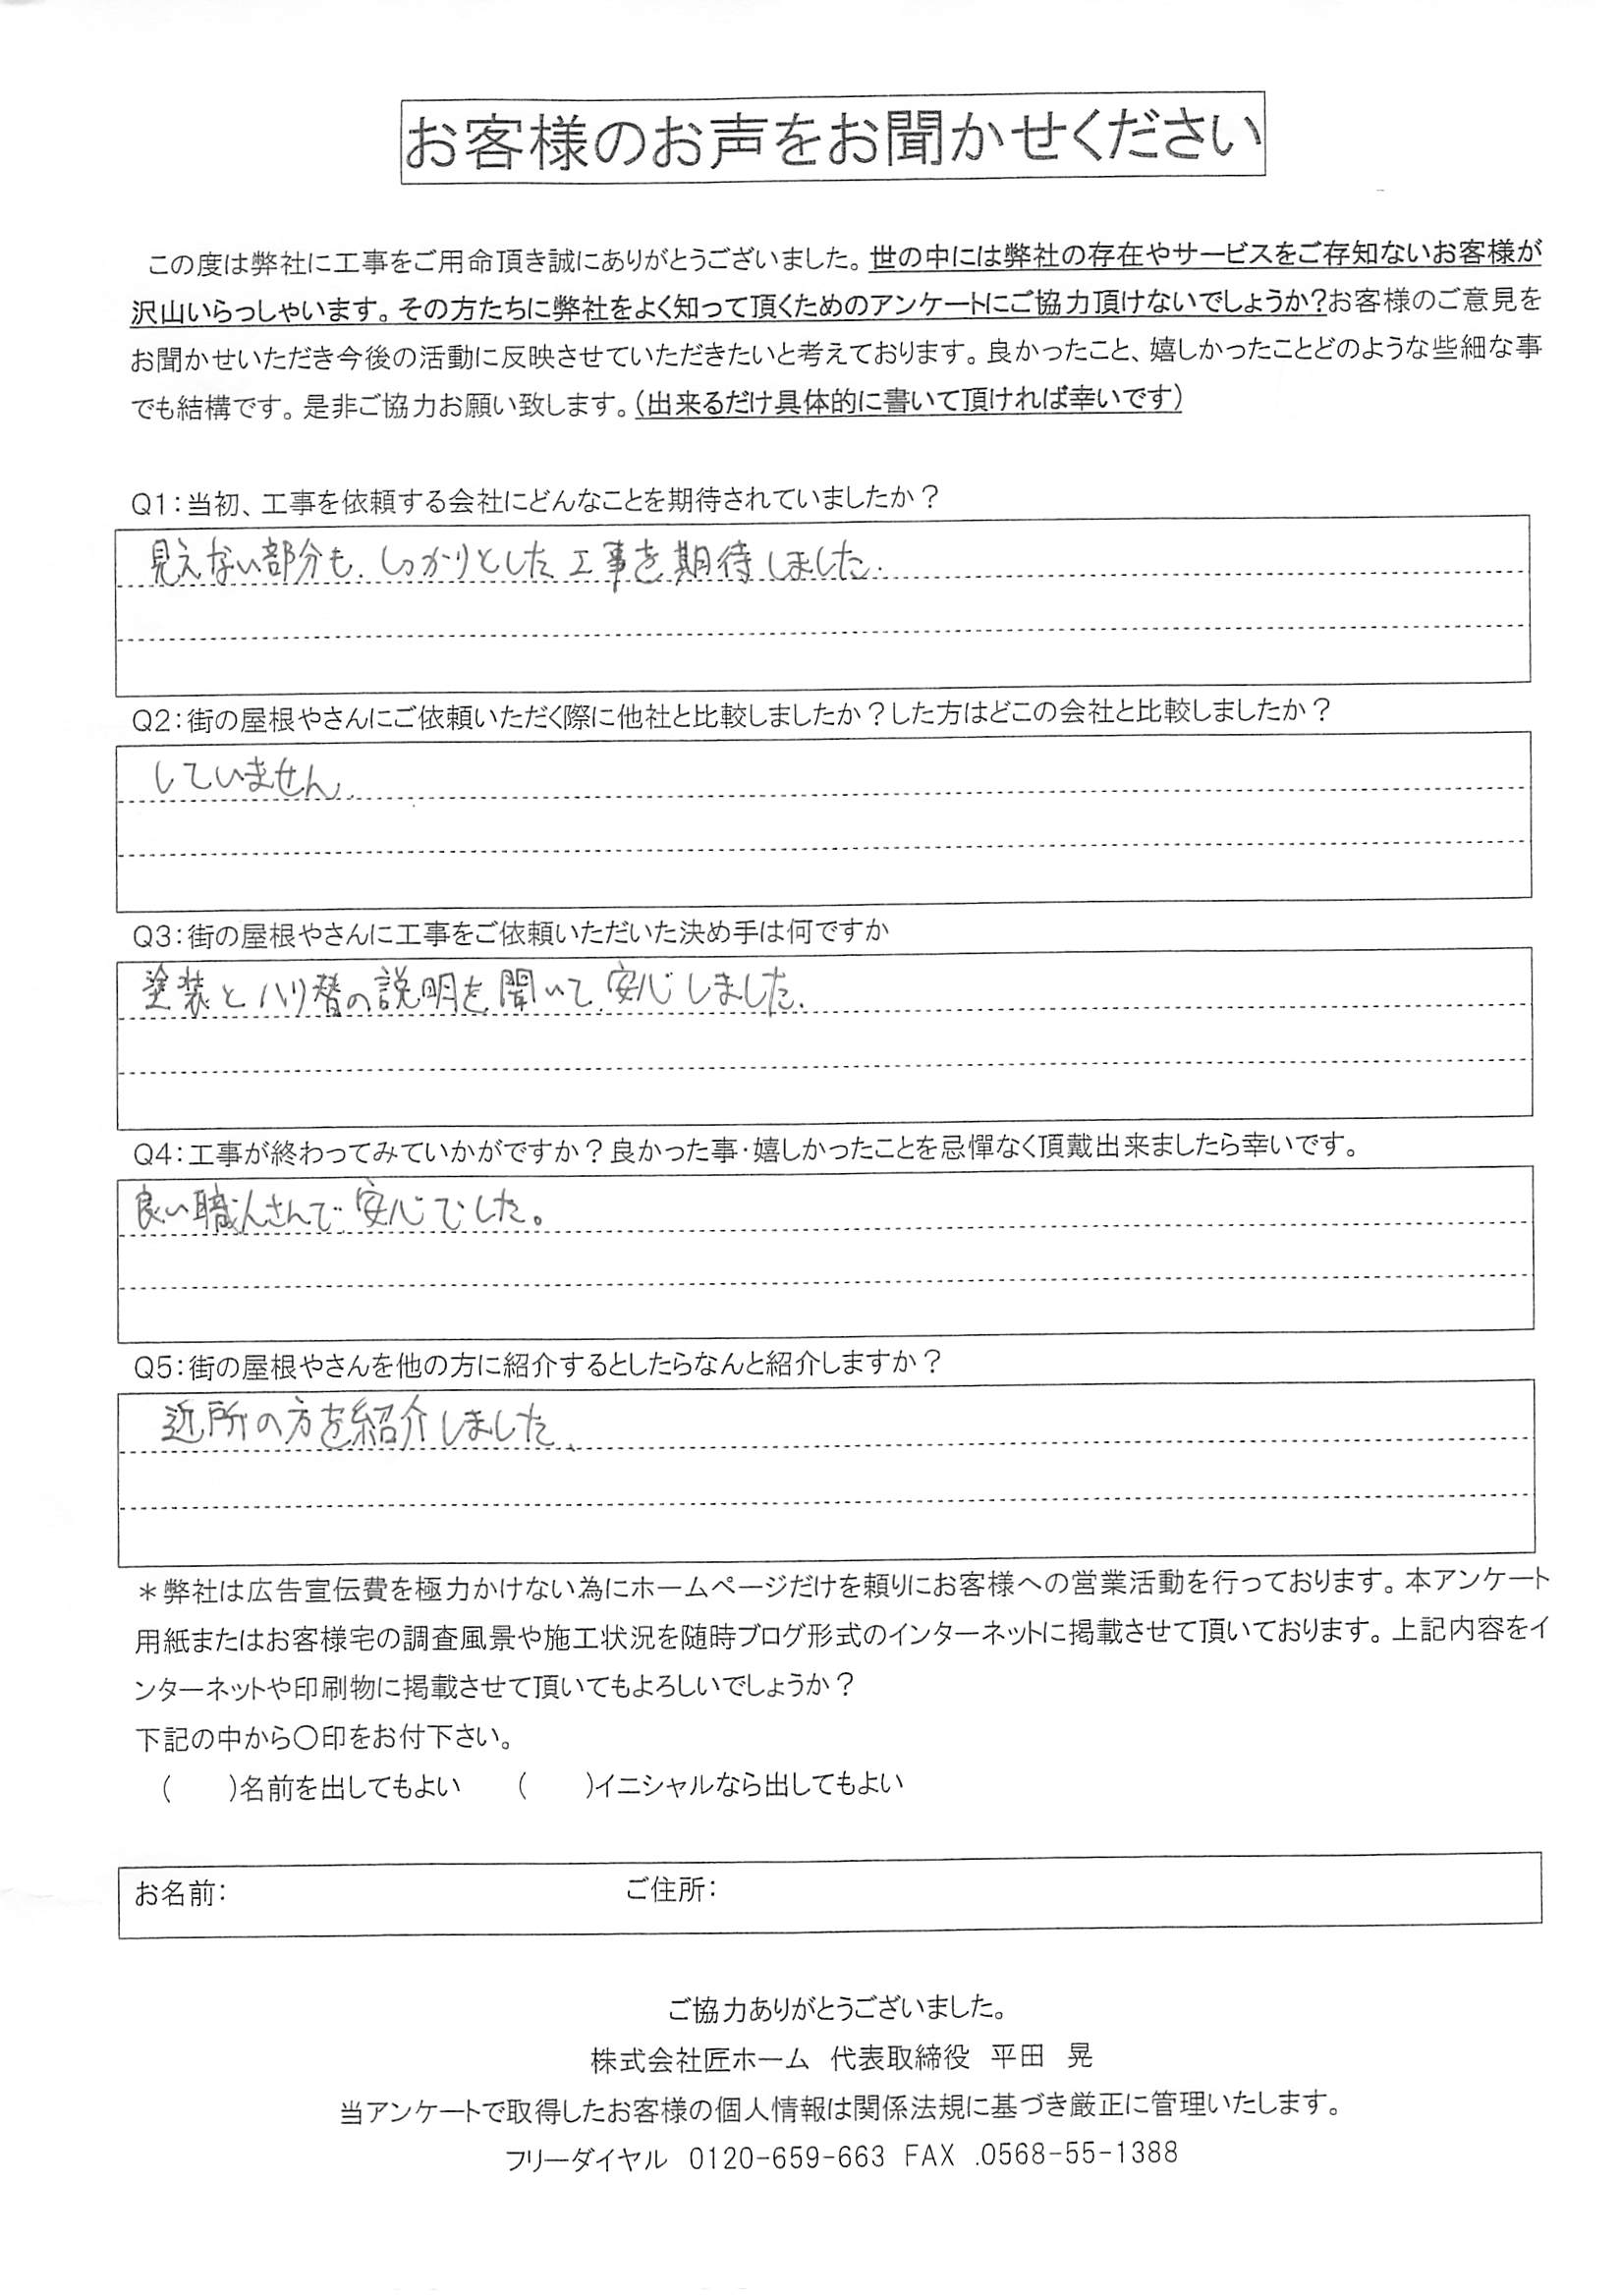 お客様のお声をお聞かせください
この度は弊社に工事をご用命頂き誠にありがとうございました。世の中には弊社の存在やサービスをご存知ないお客様が
沢山いらっしゃいます。その方たちに弊社をよく知って頂くためのアンケートにご協力頂けないでしょうか?お客様のご意見を
お聞かせいただき今後の活動に反映させていただきたいと考えております。良かったこと、嬉しかったことどのような些細な事
でも結構です。是非ご協力お願い致します。(出来るだけ具体的に書いて頂ければ幸いです)
Q1:当初、工事を依頼する会社にどんなことを期待されていましたか?
見えない部分も、しっかりとした工事を期待しました.
Q2:街の屋根やさんにご依頼いただく際に他社と比較しましたか?した方はどこの会社と比較しましたか?
していません.
Q3:街の屋根やさんに工事をご依頼いただいた決め手は何ですか
塗装とハリ替の説明を聞いて安心しました.
Q4:工事が終わってみていかがですか?良かった事・嬉しかったことを忌憚なく頂戴出来ましたら幸いです。
良い職人さんで安心でした。
Q5:街の屋根やさんを他の方に紹介するとしたらなんと紹介しますか?
近所の方を紹介しました、
*弊社は広告宣伝費を極力かけない為にホームページだけを頼りにお客様への営業活動を行っております。本アンケート
用紙またはお客様宅の調査風景や施工状況を随時ブログ形式のインターネットに掲載させて頂いております。上記内容をイ
ンターネットや印刷物に掲載させて頂いてもよろしいでしょうか?
下記の中から〇印をお付下さい。
(　　)名前を出してもよい　　(　　)イニシャルなら出してもよい
お名前:　ご住所:
ご協力ありがとうございました。
株式会社匠ホーム　代表取締役　平田　晃
当アンケートで取得したお客様の個人情報は関係法規に基づき厳正に管理いたします。
フリーダイヤル　0120-659-663 FAX .0568-55-1388